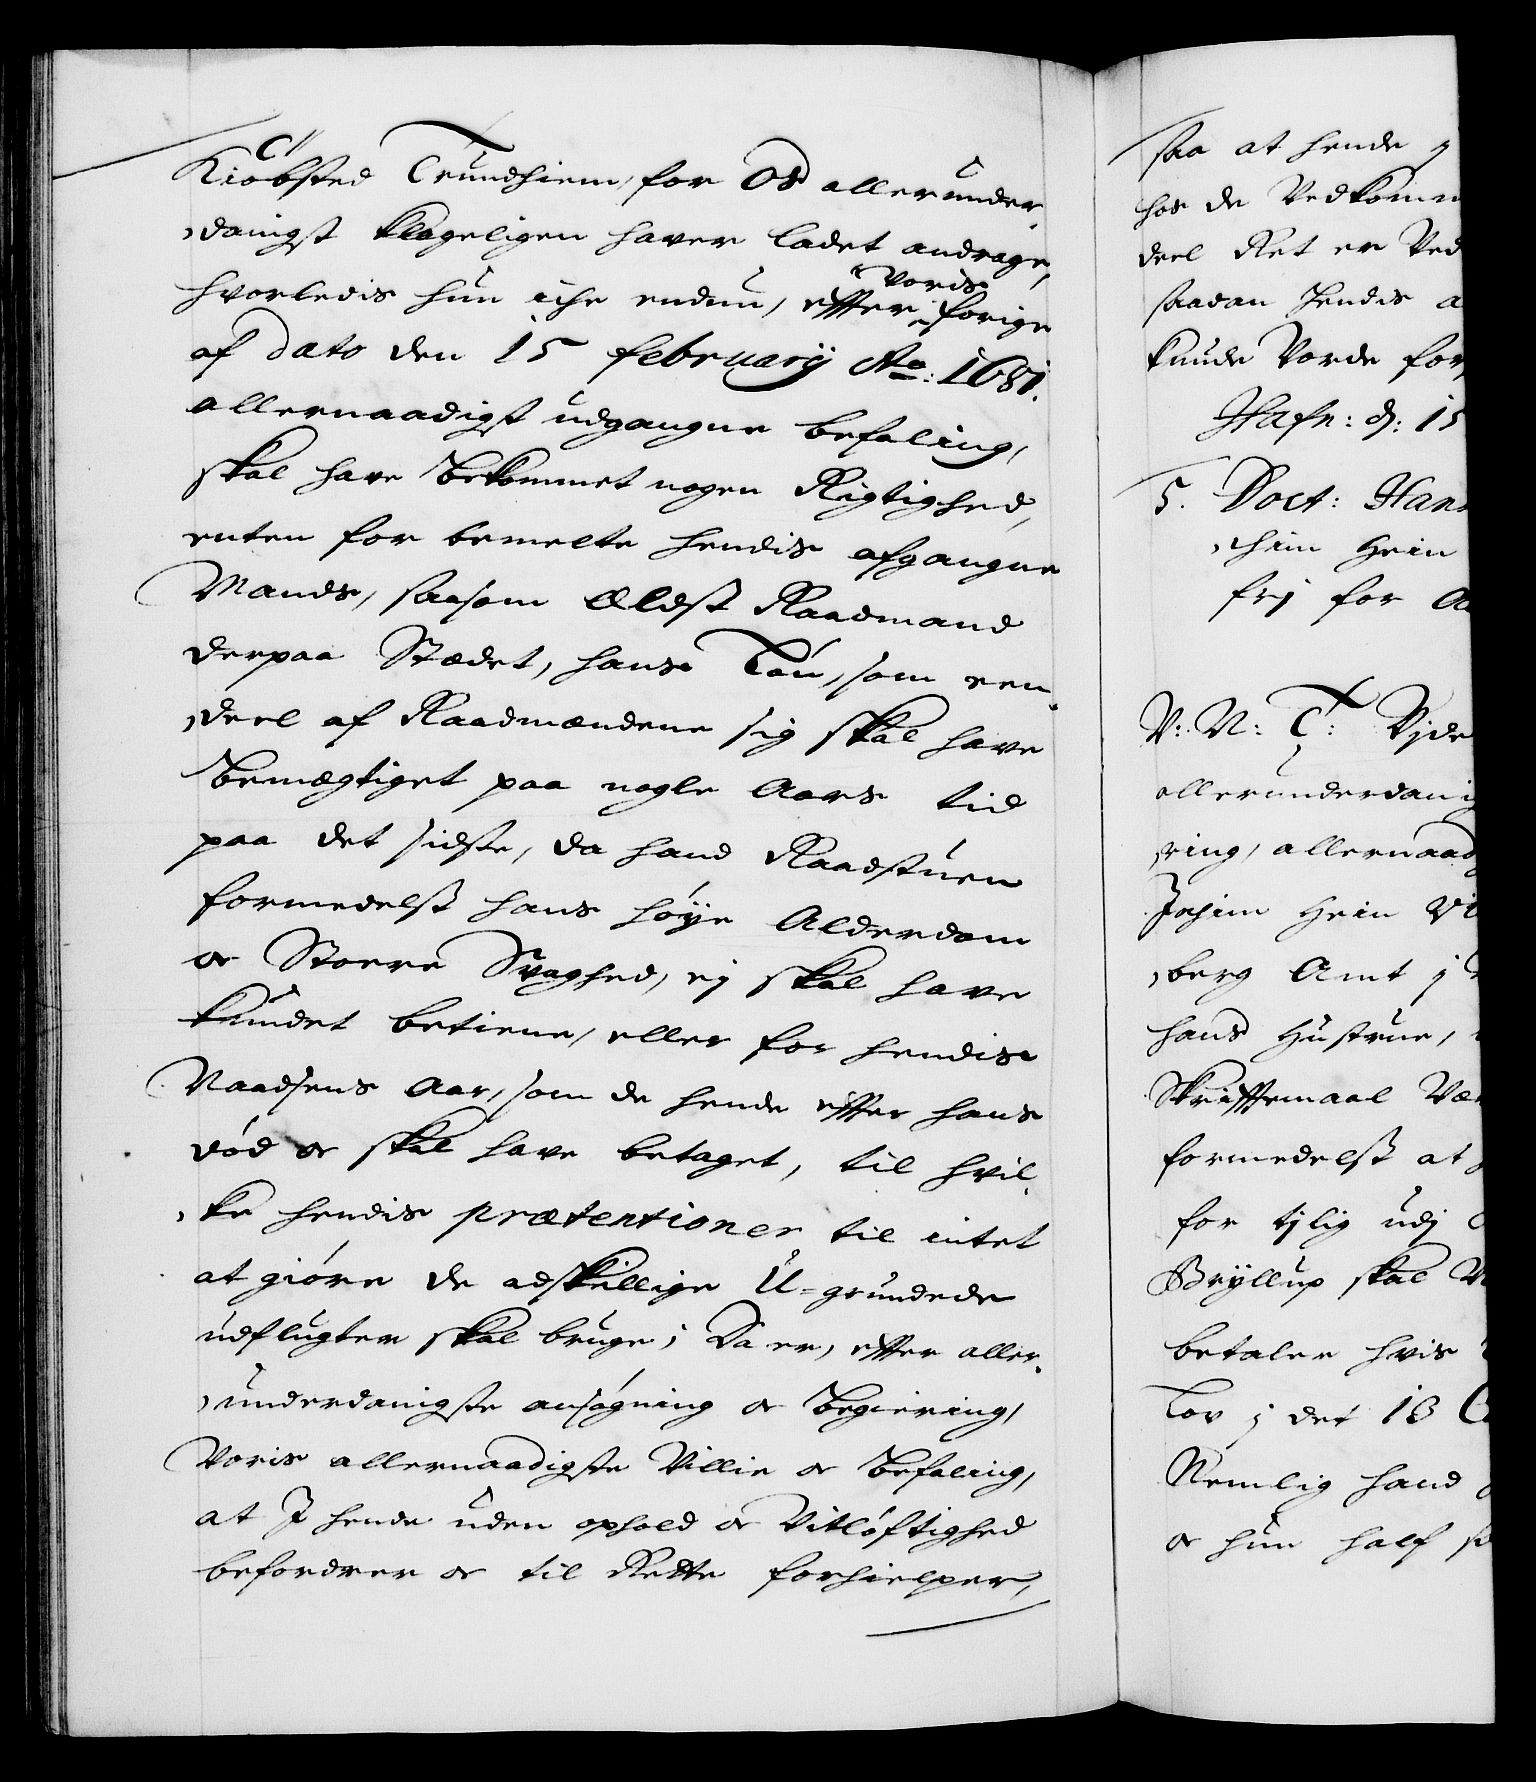 Kiøbsted Trundhiem, for Os allerunder„
„danigst klageligen haver ladet andrage,
hvorledis hun iche endnu, effter Voris forige
af Dato den 15 februarij Ao: 1681.
allernaadigst udgangne befaling,
skal have bekommet nogen Rigtighed,
enten for bemelte hendis afgangne
Mands, saasom Eldst Raadmand
derpaa Stædet, hans Løn, som een„
„deel af Raadmændene sig skal have
bemægtiget paa nogle Aars tid
paa det sidste, da hand Raadstuen
formedelst hans høye Alderdom
oc Stoere Svaghed, ej skal have
kundet betiene, eller for hendis
Naadsens Aar, som de hende effter hans
død oc skal have betaget, til hvil„
„ke hendis prætentioner til intet
at giøre de adskillige U-grundede
udflugter skal bruge; Da er, effter aller„
„underdanigste ansøgning oc Begiering,
Voris allernaadigste Villie oc Befaling,
at I hende uden ophold oc Vitløftighed
befordrer oc til Rette forhielper,
saa at hende
hos de Vedkomm
deel Ret er Ved
saadan hendis
kunde Vorde for
Hafn: d: 15
5. Doct: Hans
„chim Hein
frj for
V: N: C: Vide
allerunderdanig
„ring, allernaad
Jochim Hein
„berg Amt j
hans Hustrue,
Skrifftemaal
formedelst at
for tjlig udj
Bryllup skal
betaler hvis
Lov j det 13
Nemlig hand
oc hun half